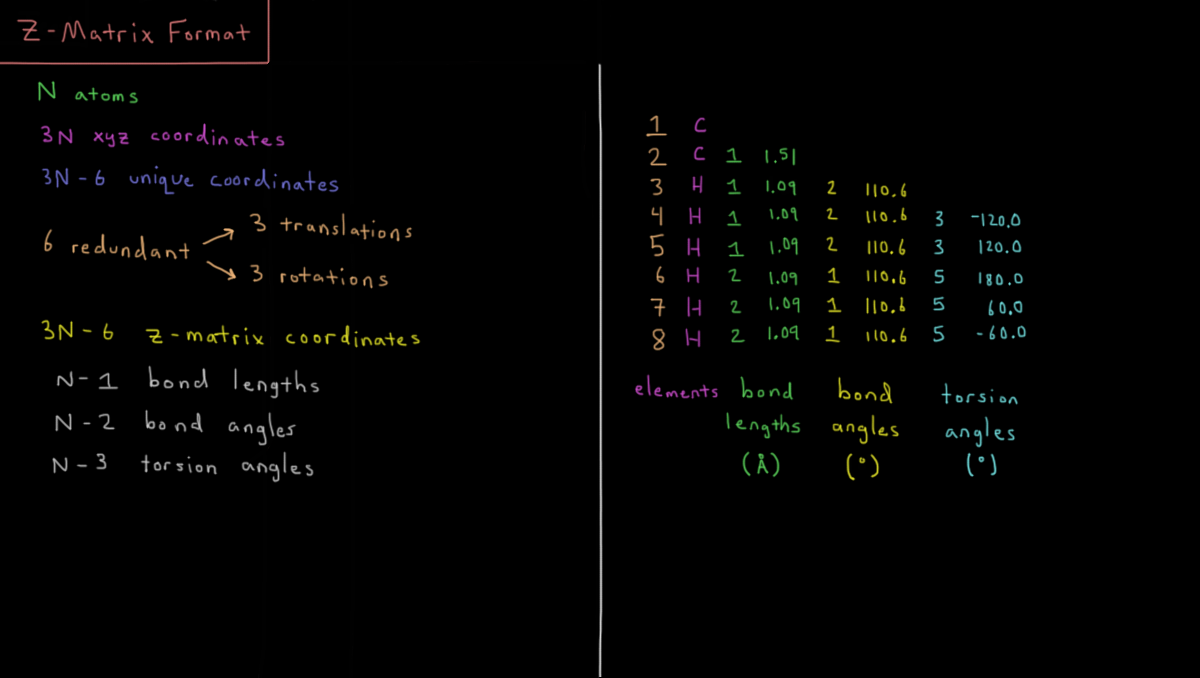 Z-Matrix Format
N atoms
3N xyz coordinates
3N-6 unique coordinates
6 redundant
3 translations
3 rotations
3N-6 z-matrix coordinates
N-1 bond lengths
N-2 bond angles
N-3 torsion angles
1 C
2 C 1 1.51
3 H 1 1.09 2 110.6
4 H 1 1.09 2 110.6 3 -120.0
5 H 1 1.09 2 110.6 3 120.0
6 H 2 1.09 1 110.6 5 180.0
7 H 2 1.09 1 110.6 5 60.0
8 H 2 1.09 1 110.6 5 -60.0
elements bond bond torsion
lengths angles angles
(Å) (°) (°)